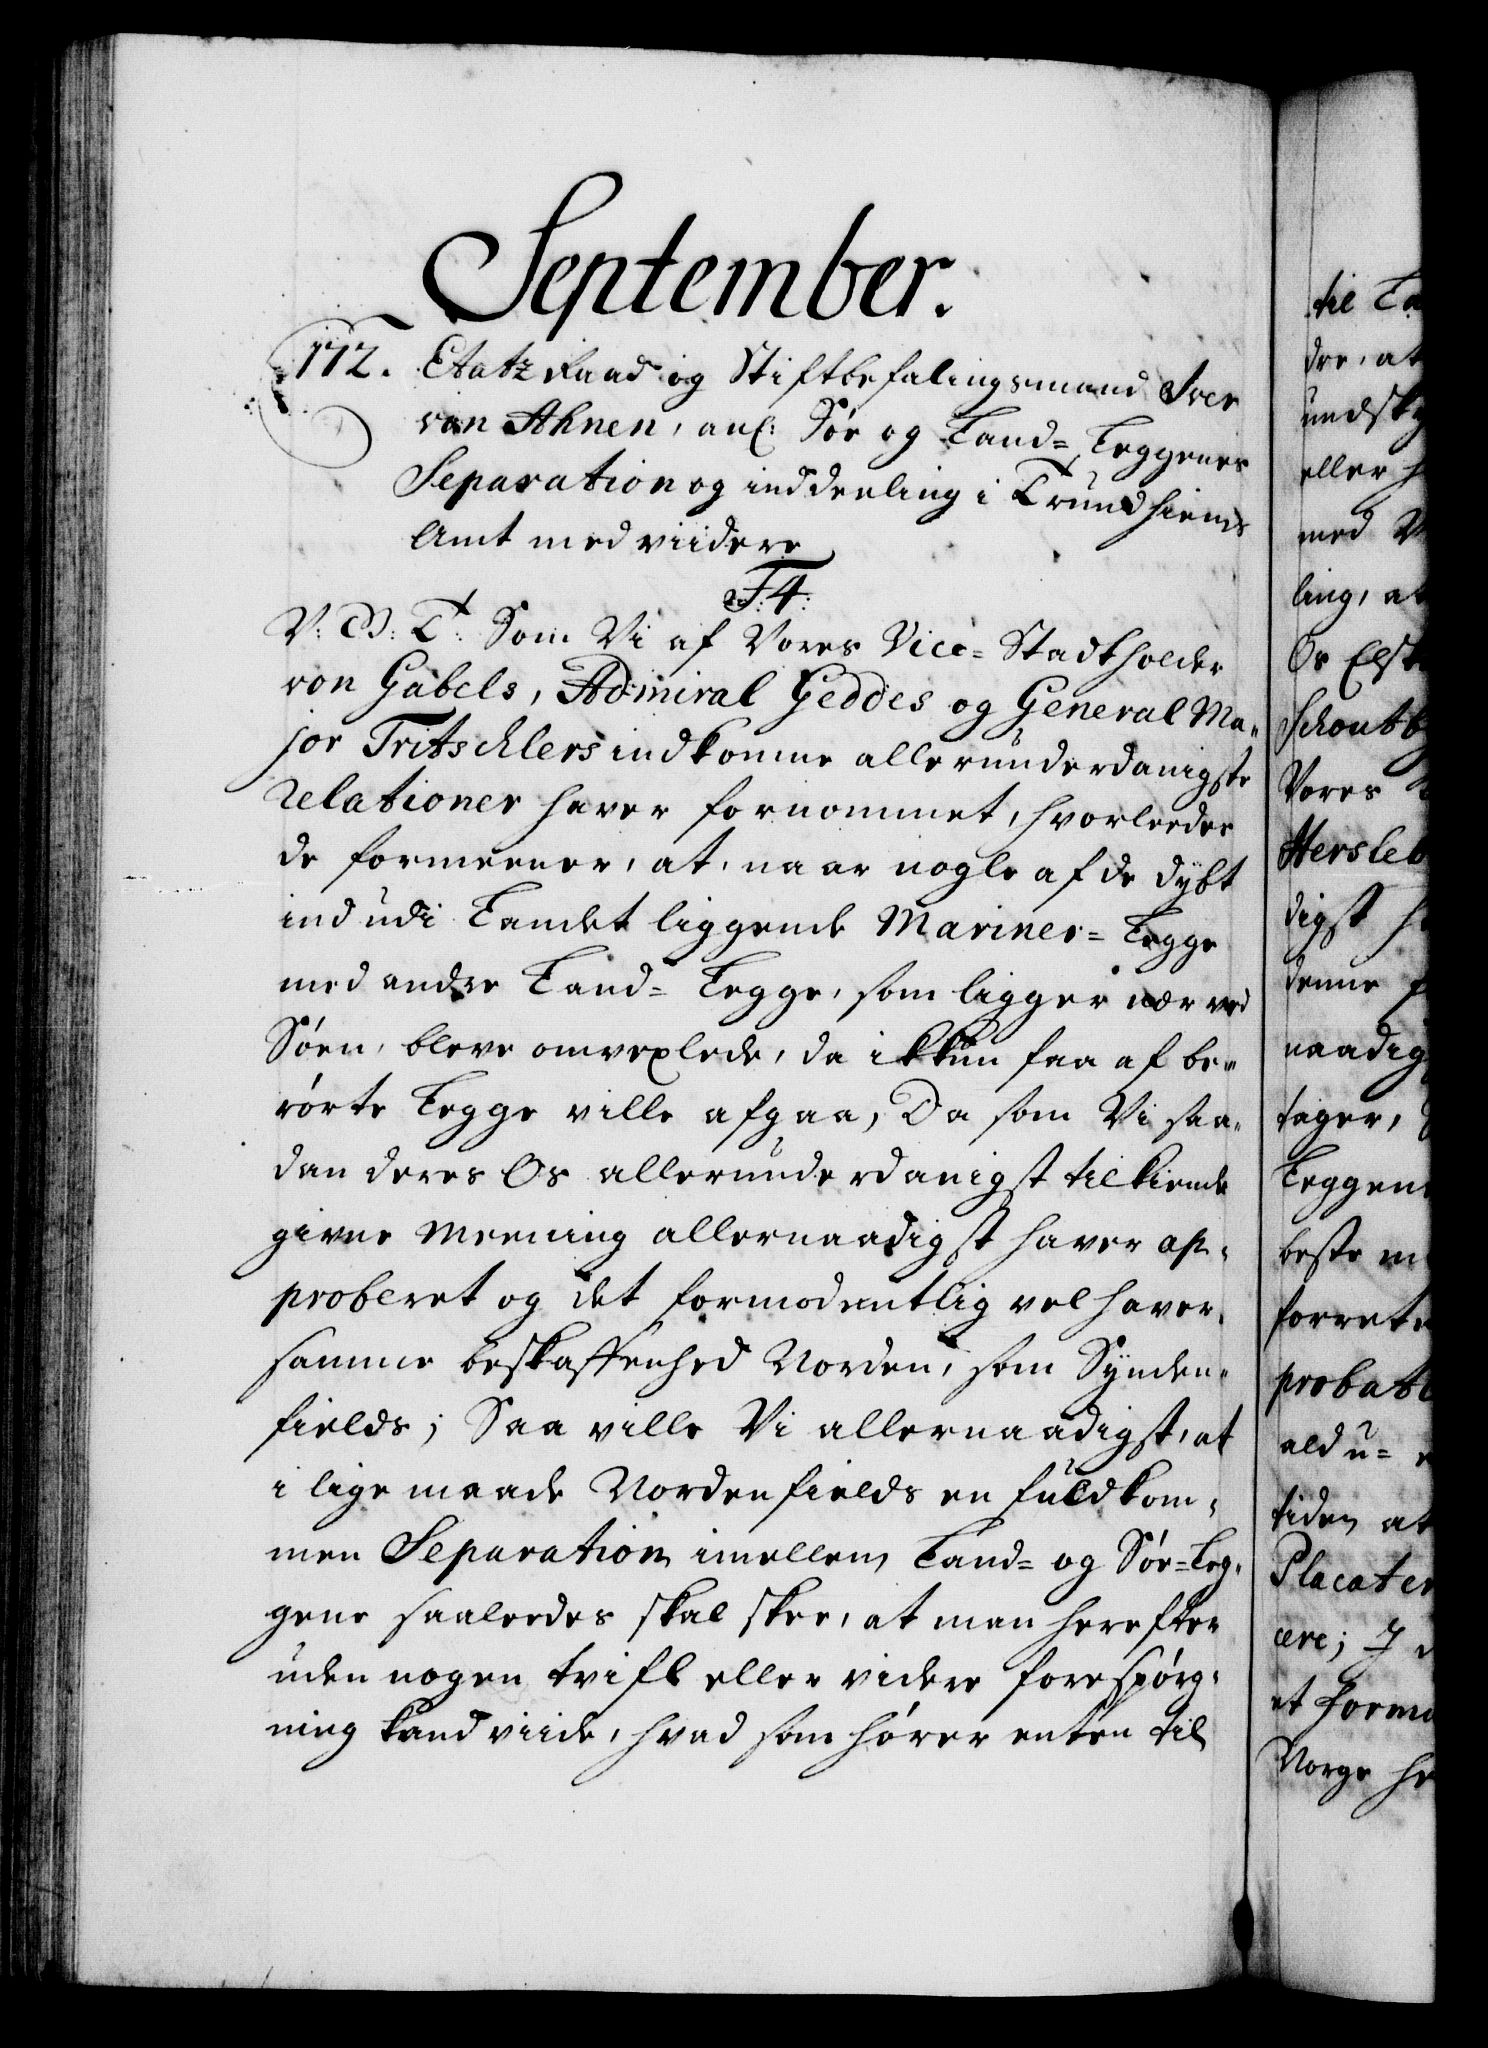 September.
172. Etatz Raad og Stiftbefalingsmand Iver
von Ahnen, anl: Söe og Land= Leggenes
Separation og inddeeling i Trundhiems
Amt med viidere
F: 4:
V: G: T: Som Vi af Vores Vice= Stadtholder
von Gabels, Admiral Geddes og General Ma=
jor Tritschlers indkomne allerunderdanigste
relationer haver fornommet, hvorleedes
de formeener, at, naar nogle af de dybt
ind udi Landet liggende Mariner= Legge
med andre Land= Legge, som ligger nær ved
Söen, bleve omvexlede, da ikkun faa af be=
rörte Legge ville afgaa, Da som Vi saa=
dan deres Os allerunderdanigst tilkiende
givne Meening allernaadigst haver ap=
proberet og det formodentlig vel haver
samme beskaffenhed Norden, som Synden=
fields; Saa ville Vi allernaadigst, at
i lige maade Nordenfields en fuldkom=
men Separation imellem Land= og Söe=Leg=
gene saaledes skal skee, at man herefter
uden nogen tvifl eller videre forespörg=
ning kand viide, hvad som hörer enten til
til La
dre, at
undsky
eller h
med V
ling, at
Os Elst
Schoutb
Vores
Hersleb
digst h
denne f
naadig
tager,
Leggen
beste m
forrett
probati
ald u=
tiden at
Placater
cere; I
et form
Norge he